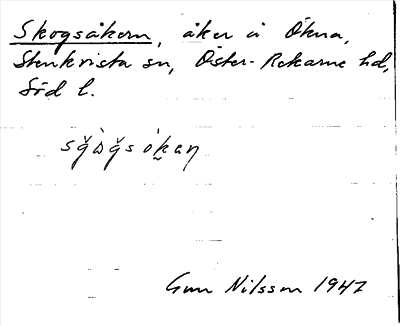 Skogsåkern, åker å Ökna,
Stenkvista sn, Öster-Rekarne hd,
Söd l.
Gun Nilsson 1947